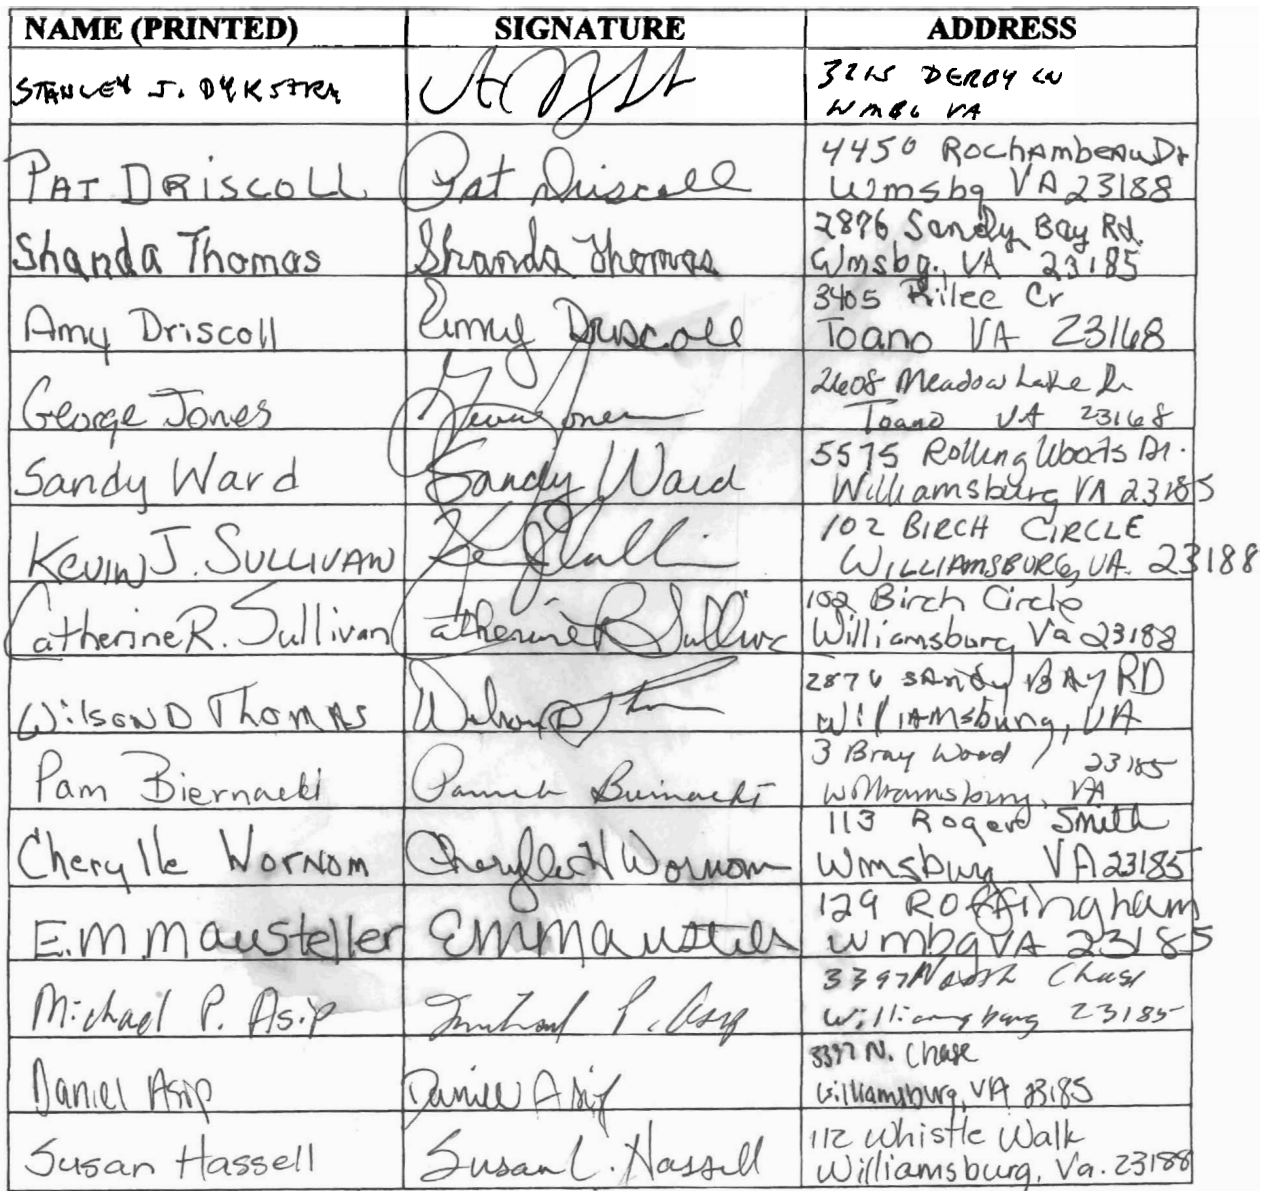 NAME (PRINTED) SIGNATURE ADDRESS
STANLEY J. DYKSTRA 3215 DERBY LN
WMBG VA
PAT DRISCOLL Pat Driscoll 4450 Rochambeau Dr
Wmsbg VA 23188
Shanda Thomas Shanda Thomas 2876 Sandy Bay Rd.
Wmsbg., VA 23185
Amy Driscoll Amy Driscoll 3405 Rilee Cr
Toano VA 23168
George Jones George Jones 2608 Meadow Lake Dr
Toano VA 23168
Sandy Ward Sandy Ward 5575 Rolling Woods Dr.
Williamsburg VA 23185
KEVIN J. SULLIVAN 102 BIRCH CIRCLE
WILLIAMSBURG, VA. 23188
Catherine R. Sullivan Catherine R Sullivan 102 Birch Circle
Williamsburg Va 23188
Wilson D Thomas 2876 Sandy BAY RD
Williamsburg, VA
23185
Pam Biernacki Pamela Biernacki 3 Bray Wood
Williamsburg, VA
Cherylle Wornom Cherylle H Wornom 113 Roger Smith
Wmsburg VA 23185
E.M. Mausteller EM Mausteller 129 Roffingham
wmbg VA 23185
Michael P. Asip Michael P. Asip 3397 North Chase
Williamsburg 23185
Daniel Asip Daniel Asip 3397 N. Chase
Williamsburg, VA 23185
Susan Hassell Susan L. Hassell 112 Whistle Walk
Williamsburg, Va. 23188